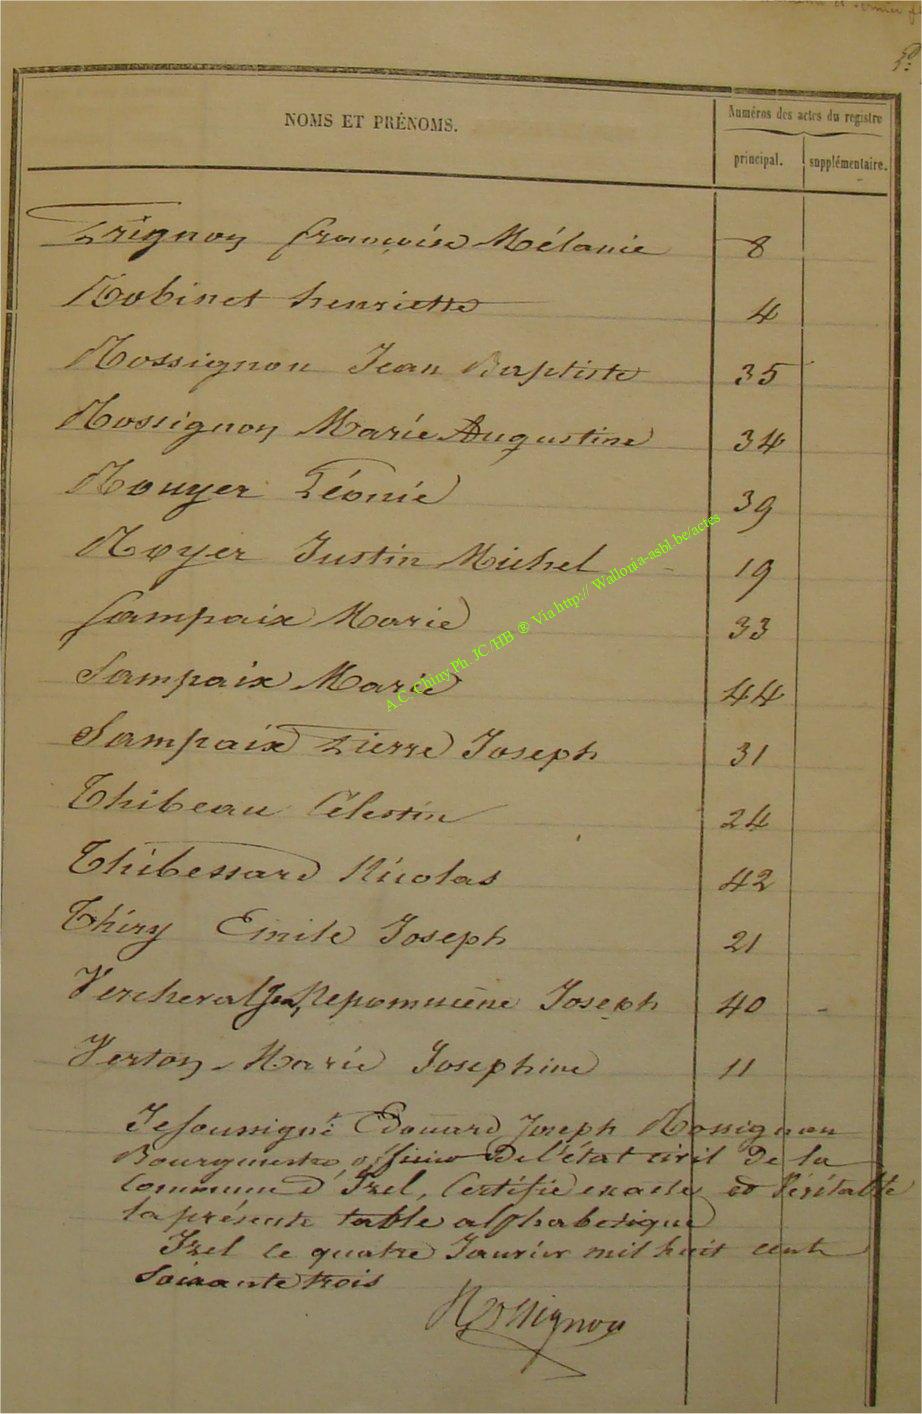 NOMS ET PRÉNOMS.
Numéros des actes du registre
principal.
supplémentaire.
Prignon françoise Mélanie 8
Robinet henriette 4
Rossignon Jean Baptiste 35
Rossignon Marie Augustine 34
Rouyer Léonie 39
Royer Justin Michel 19
Sampaix Marie 33
Sampaix Marie 44
Sampaix Pierre Joseph 31
Thibeau Célestin 24
Thibessard Nicolas 42
Thiry Emile Joseph 21
Vercheval Jean Nepomucène Joseph 40
Verton Marie Josephine 11
Je soussigné Edouard Joseph Rossignon
Bourgmestre, officier De l'état civil De la
Commune D'Izel, Certifie exacte et Véritable
la présente table alphabetique
Izel le quatre Janvier mil huit cent
Soixante trois
Rossignon
A.C. Chiny Ph. JC/HB ® Via http:// Wallonia-asbl.be/actes